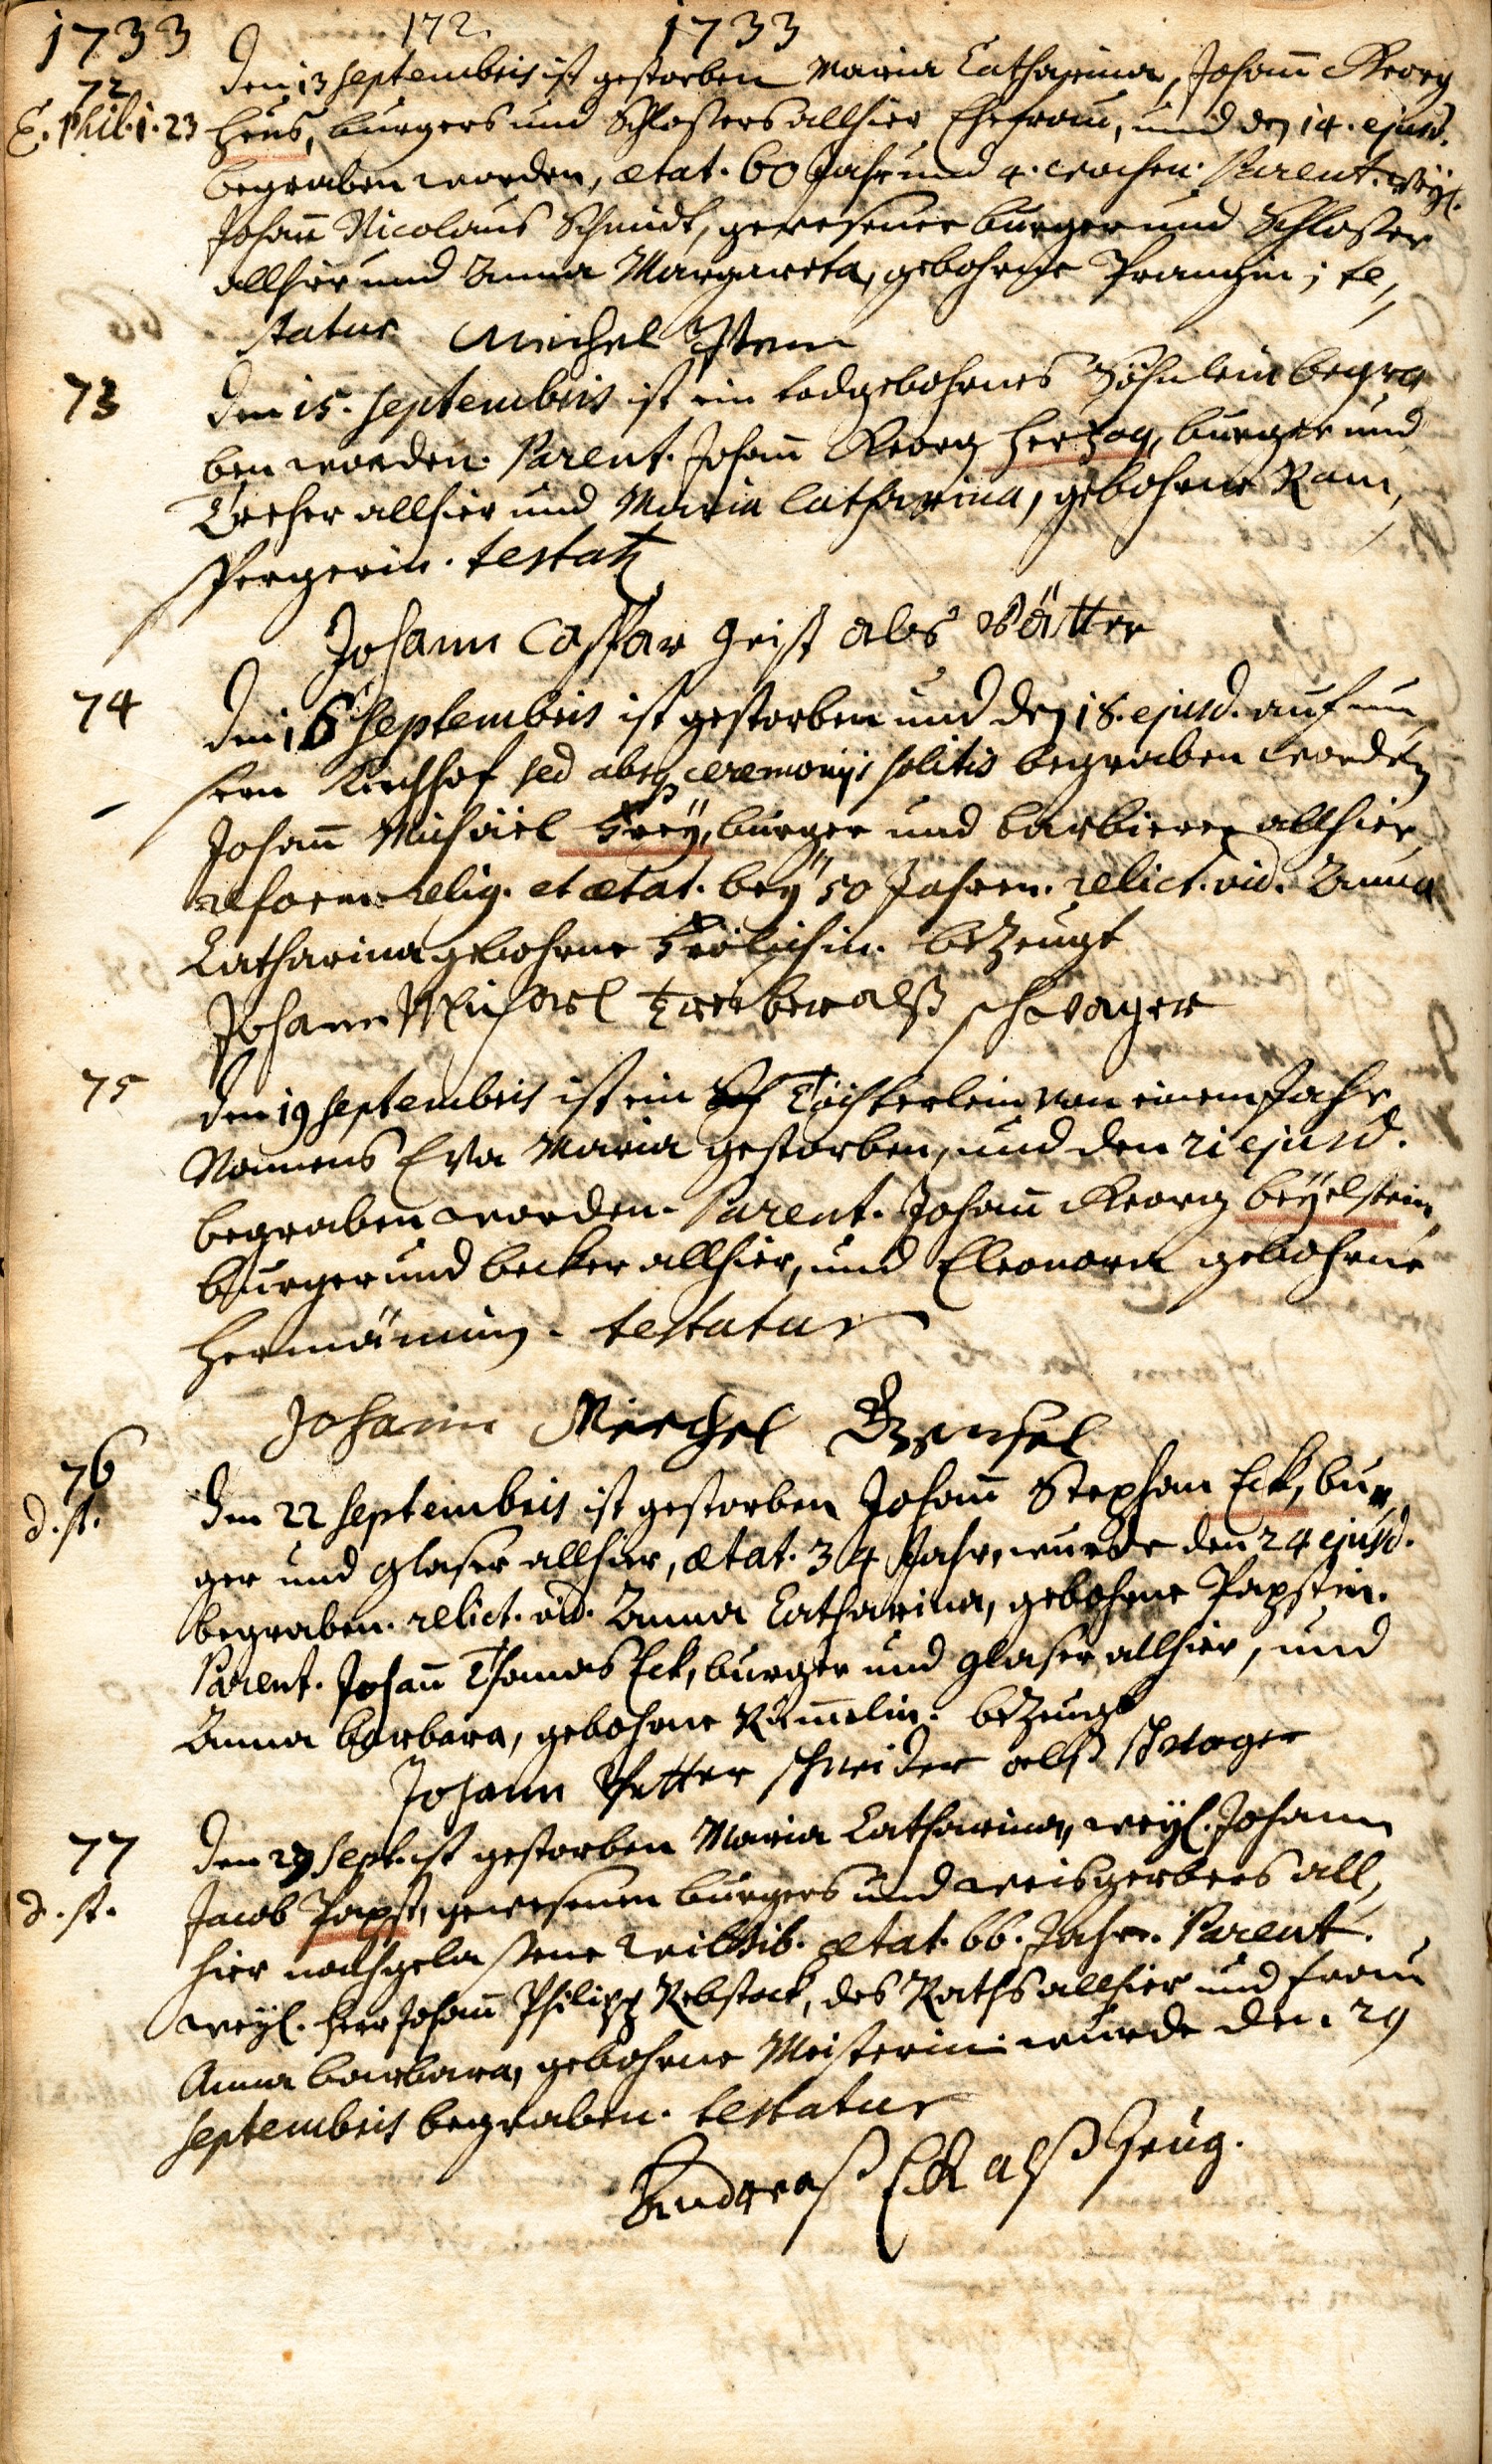 1733 172. 1733
72
E. Phil. 1. 23
den 13 Septembris ist gestorben Maria Catharina, Johan̄ Georg
Heus, burgers und Schlossers allhier Ehefrau, und den 14. ejusd.
begraben worden, ætat. 60 Jahr und 4. wochen. Parent. weyl.
Johan̄ Nicolaus Schmidt, gewesener burger und Schlosser
allhier und Anna Margareta, gebohrne; te,
statur Michel
73
den 15. Septembris ist ein todgebohrnes Söhnlein begra
ben worden. Parent. Johan̄ Georg Hertzog, burger und
allhier und Maria Catharina, gebohrne Ram,
spergerin. testatr
Johann Casspar Geist als Vätter
74
den 16 Septembris ist gestorben und den 18. ejusd. auf un,
sern Kirchhof sed absq ceremoniis solitis begraben worden
Johan̄ Michäel Frey, burger und barbierer allhier,
reform. relig. et ætat. bey 50 Jahren. relict. vid. Anna
Catharina gebohrne Frölichin. bezeugt
Johann Michael alß schwager
75
den 19 Septembris ist ein Töchterlein von einem Jahr
Nammens Eva Maria gestorben, und den 21 ejusd.
begraben worden. Parent. Johan̄ Georg beyelstein,
burger und becker allhier, und Eleonora gebohrne
Hermännin. testatur
Johann Miechel
76
d. st.
den 22 Septembris ist gestorben Johan̄ Stephan Eck, bur,
ger und glaser allhier, ætat. 34 Jahr, wurde den 24 ejusd.
begraben. relict. vid. Anna Catharina, gebohrne Papstin.
Parent. Johan̄ Thomas Eck, burger und glaser allhier, und
Anna barbara, gebohrne Rümelin. bezeugt
Johann Petter schneider alß schwager
77
d. st.
den 27 Sept. ist gestorben Maria Catharina, weyl. Johann
Jacob Papst, gewesenen burgers und weisgerbers all,
hier nachgelassene wittib. ætat. 66. Jahr. Parent.
weyl. Herr Johan̄ Philipp Rebstock, des Raths allhier und Frau
Anna barbara, gebohrne Meisterin. wurde den 29
Septembris begraben. testatur
Andreaß Eck alß Zeug.